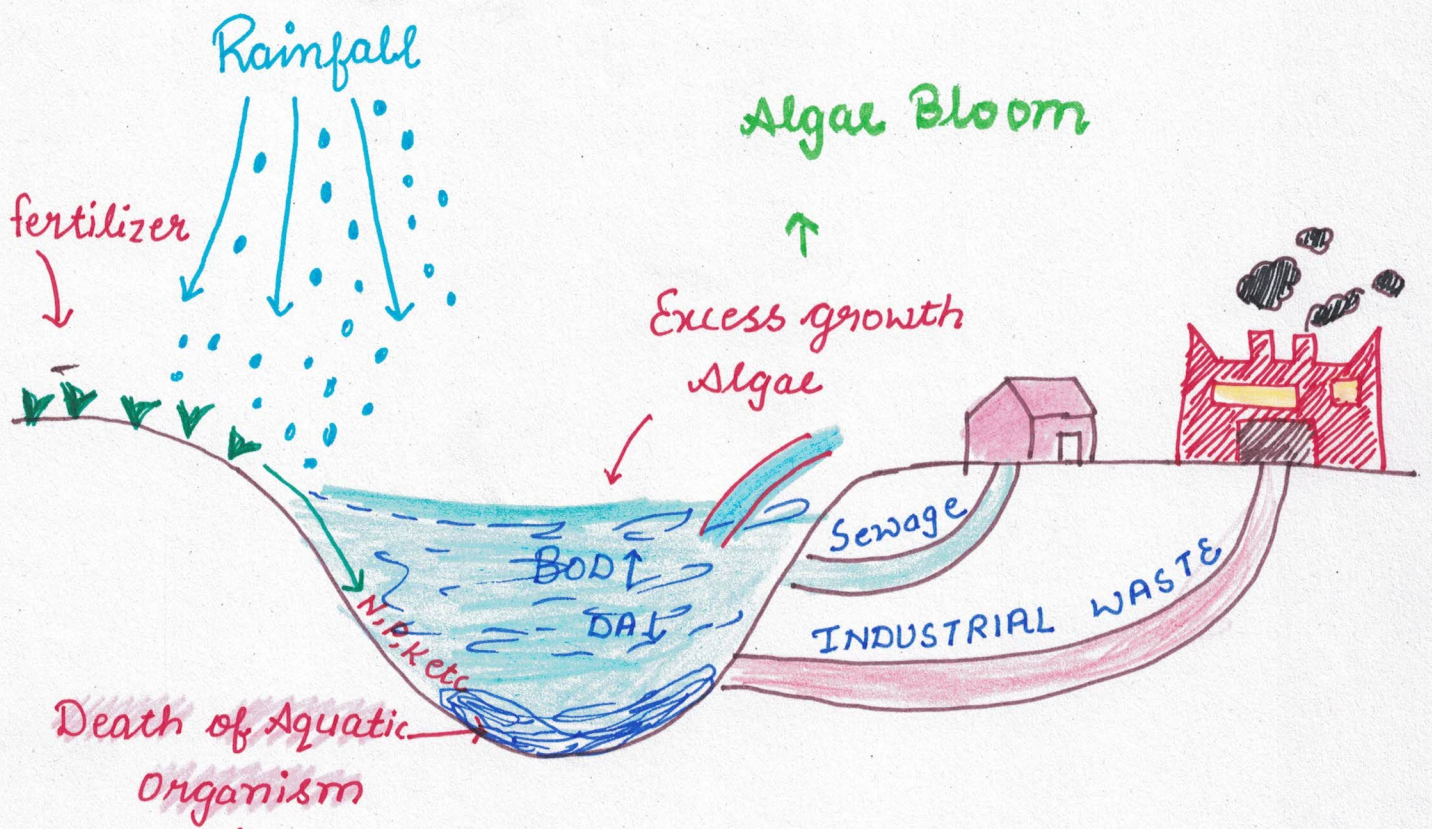 Rainfall
Algae Bloom
fertilizer
Excess growth
Algae
Sewage
BOD↑
DA↓
INDUSTRIAL WASTE
N, P, K etc
Death of Aquatic
Organism